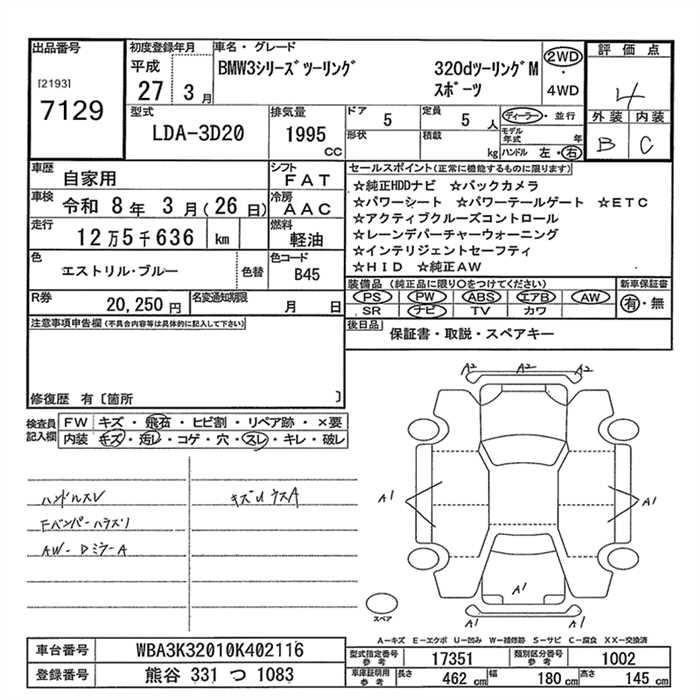 出品番号
[2193]
7129
初度登録年月
平成
27 3月
車名・グレード
BMW3シリーズツーリング 320dツーリングM
スポーツ
2WD
・
4WD
評価点
4
外装 内装
B C
型式
LDA-3D20
排気量
1995
cc
ドア 5
定員 5 人
形状
積載 kg
ディーラー・並行
モデル年式 年
ハンドル 左・右
車歴 自家用
シフト FAT
車検 令和 8年 3月(26日)
冷房 AAC
走行 12万5千636 km
燃料 軽油
色 エストリル・ブルー 色替
色コード B45
R券 20,250円
名変通知期限 月 日
セールスポイント(正常に機能するものに限ります)
☆純正HDDナビ ☆バックカメラ
☆パワーシート ☆パワーテールゲート ☆ETC
☆アクティブクルーズコントロール
☆レーンデパーチャーウォーニング
☆インテリジェントセーフティ
☆HID ☆純正AW
装備品(純正品に限り○をつけてください)
新車保証書
PS PW ABS エアB AW
SR ナビ TV カワ
有・無
後日品 保証書・取説・スペアキー
注意事項申告欄(不具合内容等は具体的に記入して下さい)
修復歴 有〔箇所 〕
検査員
記入欄
FW キズ・飛石・ヒビ割・リペア跡・×要
内装 キズ・汚レ・コゲ・穴・スレ・キレ・破レ
ハンドルスレ
キズUウスA
Fバンパーハラスリ
AW-DミラーA
A2 A2 A2
A1
A1
A1
スペア
A-キズ E-エクボ U-凹み W-補修跡 S-サビ C-腐食 XX-交換済
車台番号 WBA3K32010K402116
登録番号 熊谷 331 つ 1083
型式指定番号
参考
17351
類別区分番号
参考
1002
車庫証明用
参考
長さ 462 cm
幅 180 cm
高さ 145 cm